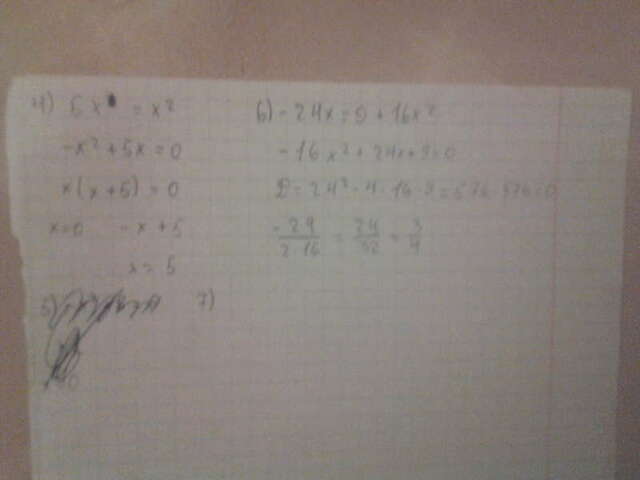 4) 5x = x²
-x² + 5x = 0
x(x + 5) = 0
x=0 -x + 5
x = 5
5)
6) -24x = 9 + 16x²
-16x² + 24x + 9 = 0
D = 24² - 4 · 16 · 9 = 576 - 576 = 0
-24/2·16 = 24/32 = 3/4
7)